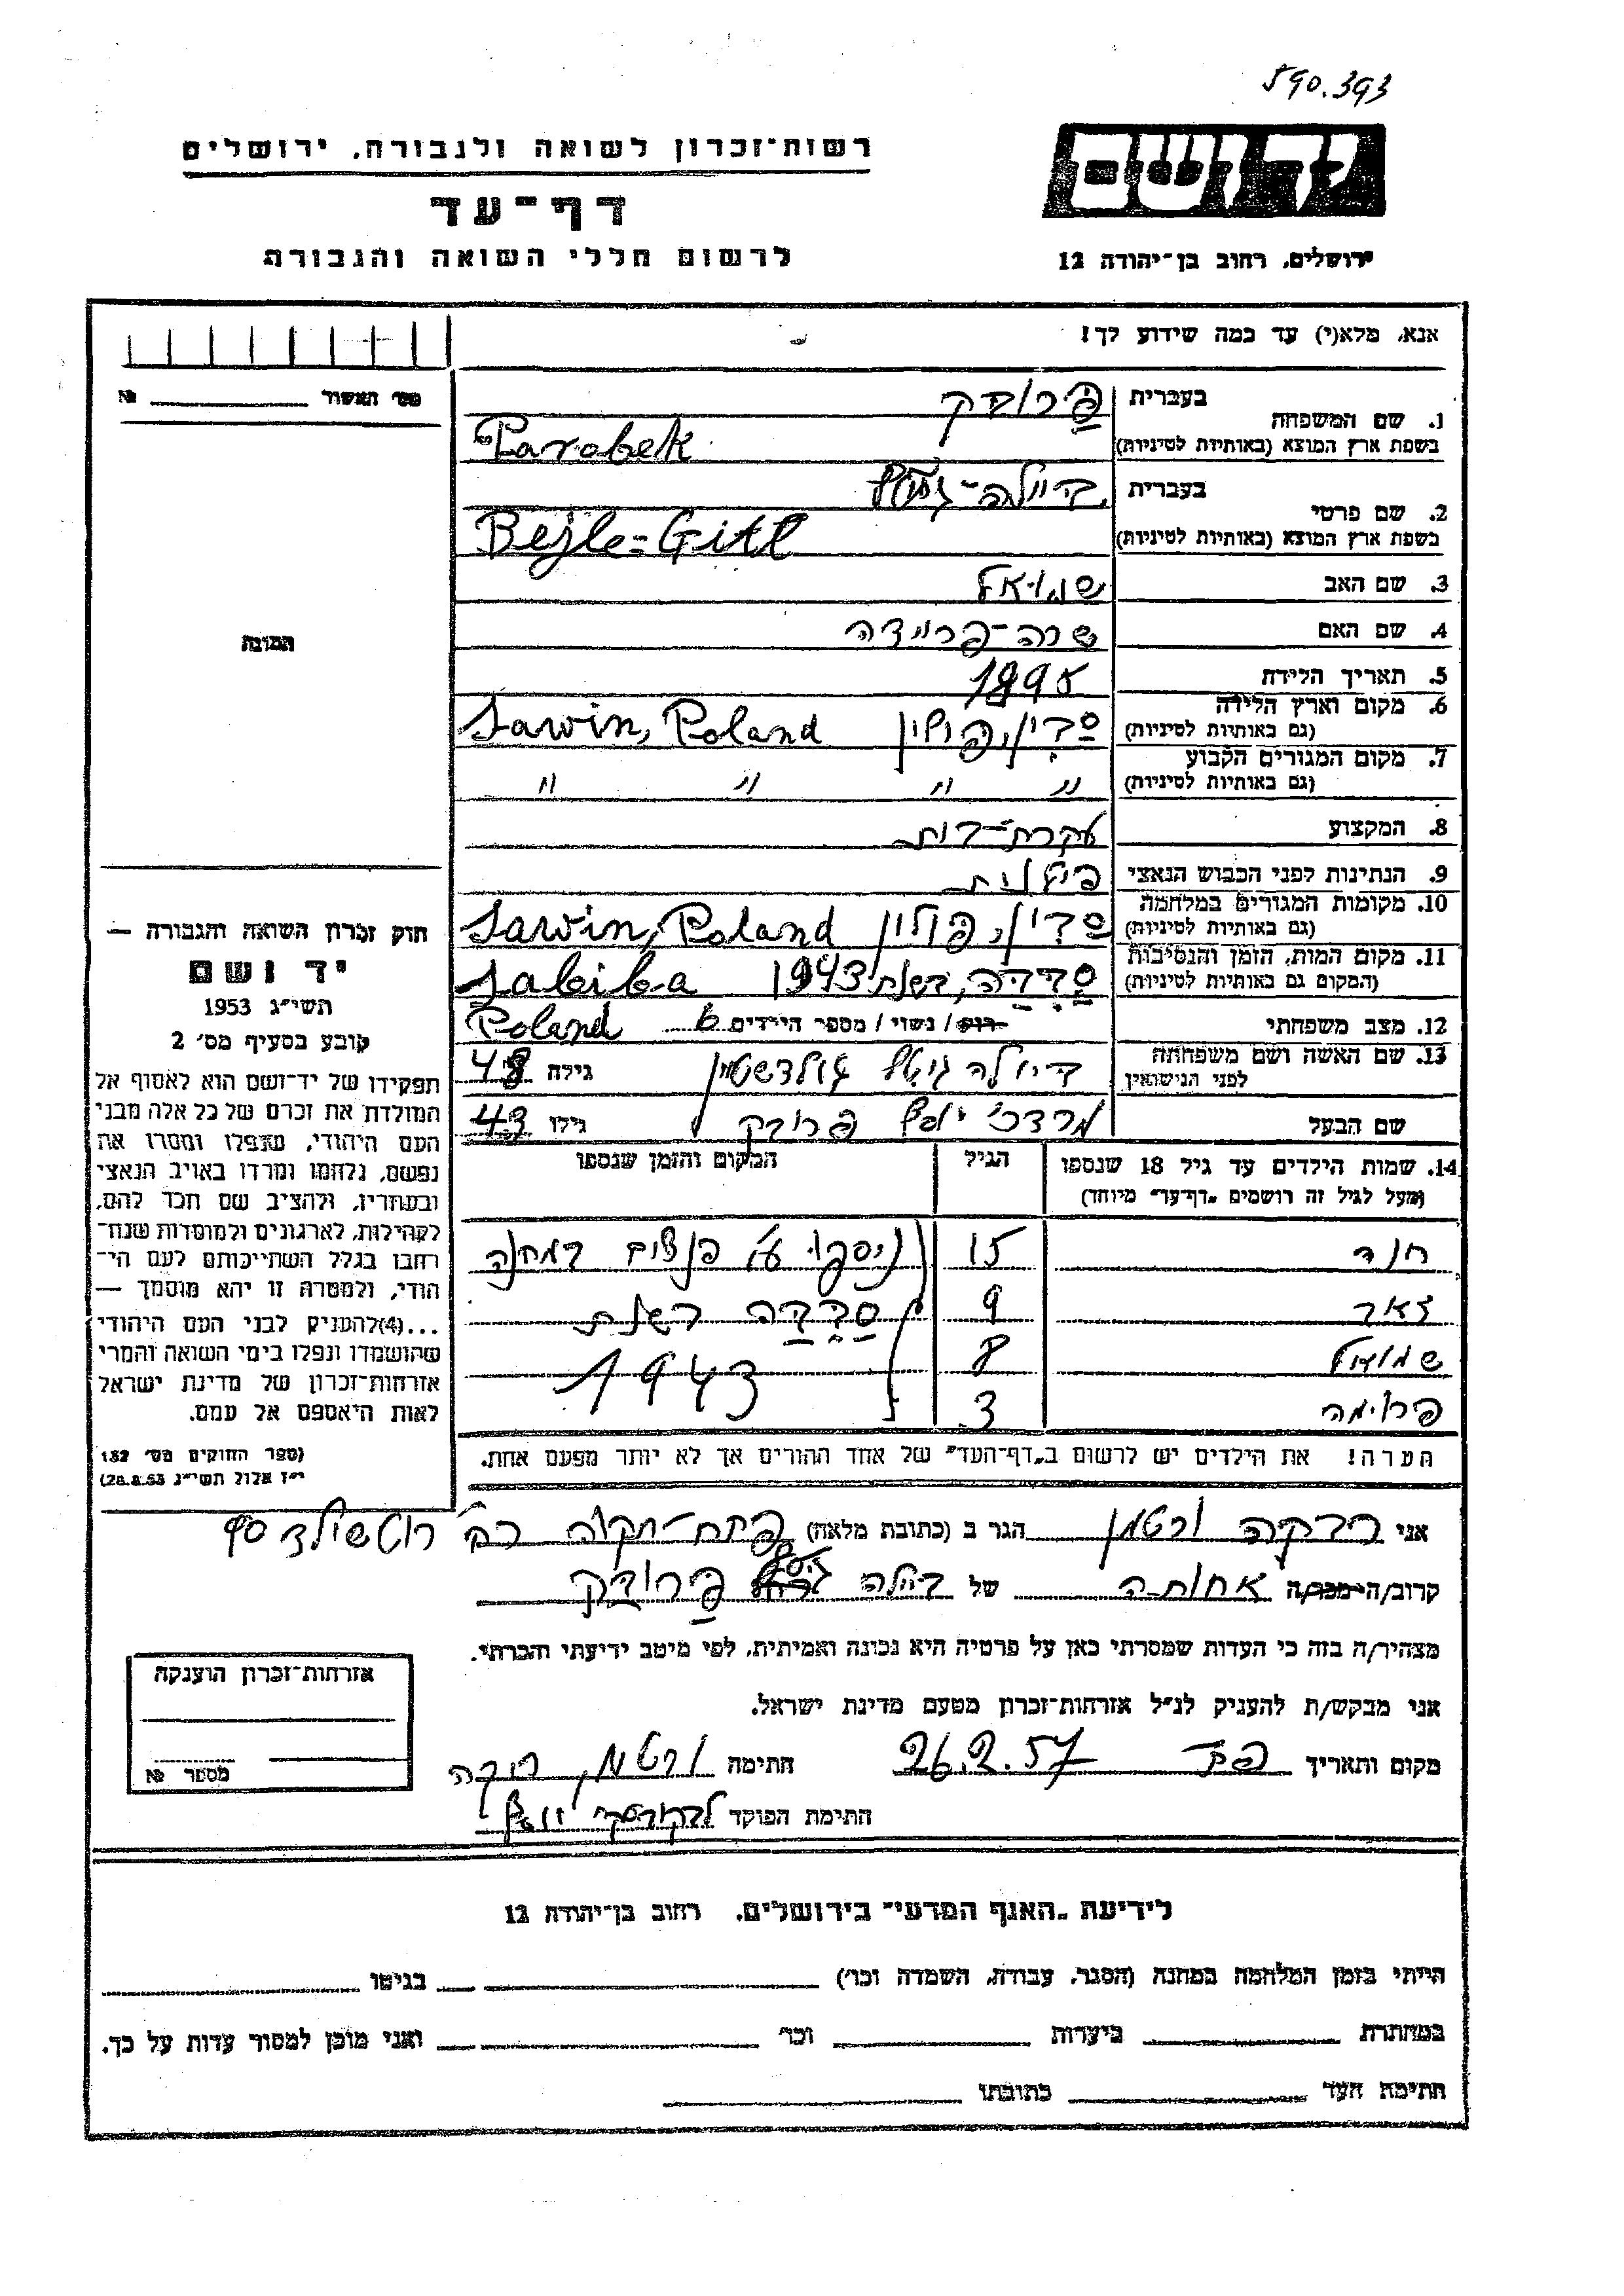 590.393
יד ושם
רשות־זכרון לשואה ולגבורה, ירושלים
דף־עד
לרשום חללי השואה והגבורה
ירושלים, רחוב בן־יהודה 12
אנא, מלא(י) עד כמה שידוע לך!
מס׳ האשור № 
1. שם המשפחה בעברית פרובק
בשפת ארץ המוצא (באותיות לטיניות) Parobek
2. שם פרטי בעברית ביילה-גיטל
בשפת ארץ המוצא (באותיות לטיניות) Bejle=Gitl
3. שם האב שמואל
4. שם האם שרה-פריידה
5. תאריך הלידה 1895
6. מקום וארץ הלידה סבין, פולין Sawin, Poland
(גם באותיות לטיניות)
7. מקום המגורים הקבוע
(גם באותיות לטיניות) " " " "
8. המקצוע עקרת-בית
9. הנתינות לפני הכבוש הנאצי פולנית
10. מקומות המגורים במלחמה סבין, פולין Sawin, Poland
(גם באותיות לטיניות)
11. מקום המות, הזמן והנסיבות סביבה, בשנת 1943 Sabiba
(המקום גם באותיות לטיניות)
12. מצב משפחתי רוק / נשוי / מספר הילדים 6 Poland
13. שם האשה ושם משפחתה
לפני הנישואין ביילה גיטל גולדשטיין גילה 48
שם הבעל מרדכי יוסף פרובק גילו 43
14. שמות הילדים עד גיל 18 שנספו הגיל המקום והזמן שנספו
(מעל לגיל זה רושמים „דף־עד״ מיוחד)
חנה 15 ניספו ע״י הנאצים במחנה
9 סביבה בשנת
שמואל 8 1943
פרומה 3
הערה! את הילדים יש לרשום ב„דף־העד״ של אחד ההורים אך לא יותר מפעם אחת.
התמונה
חוק זכרון השואה והגבורה —
יד ושם
תשי״ג 1953
קובע בסעיף מס׳ 2
תפקידו של יד־ושם הוא לאסוף אל
המולדת את זכרם של כל אלה מבני
העם היהודי, שנפלו ומסרו את
נפשם, נלחמו ומרדו באויב הנאצי
ובעוזריו, ולהציב שם וזכר להם,
לקהילות, לארגונים ולמוסדות שנח־
רבו בגלל השתייכותם לעם הי־
הודי, ולמטרה זו יהא מוסמך —
...(4)להעניק לבני העם היהודי
שהושמדו ונפלו בימי השואה והמרי
אזרחות־זכרון של מדינת ישראל
לאות היאספם אל עמם.
(ספר החוקים מס׳ 132
י״ז אלול תשי״ג 28.8.53)
אני רבקה ורטמן הגר ב (כתובת מלאה) פתח-תקוה רח׳ רוטשילד
קרוב/ה מכר/ה אחותה של ביילה גיטל פרובק
מצהיר/ה בזה כי העדות שמסרתי כאן על פרטיה היא נכונה ואמיתית, לפי מיטב ידיעתי והכרתי.
אני מבקש/ת להעניק לנ״ל אזרחות־זכרון מטעם מדינת ישראל.
מקום ותאריך פ״ת 26.2.57 חתימה ורטמן רבקה
חתימת הפוקד
אזרחות־זכרון הוענקה
מספר №
לידיעת „האגף המדעי״ בירושלים, רחוב בן־יהודה 12
הייתי בזמן המלחמה במחנה (הסגר, עבודה, השמדה וכו׳) בגיטו
במחתרת ביערות וכו׳ ואני מוכן למסור עדות על כך.
חתימת העד כתובתו